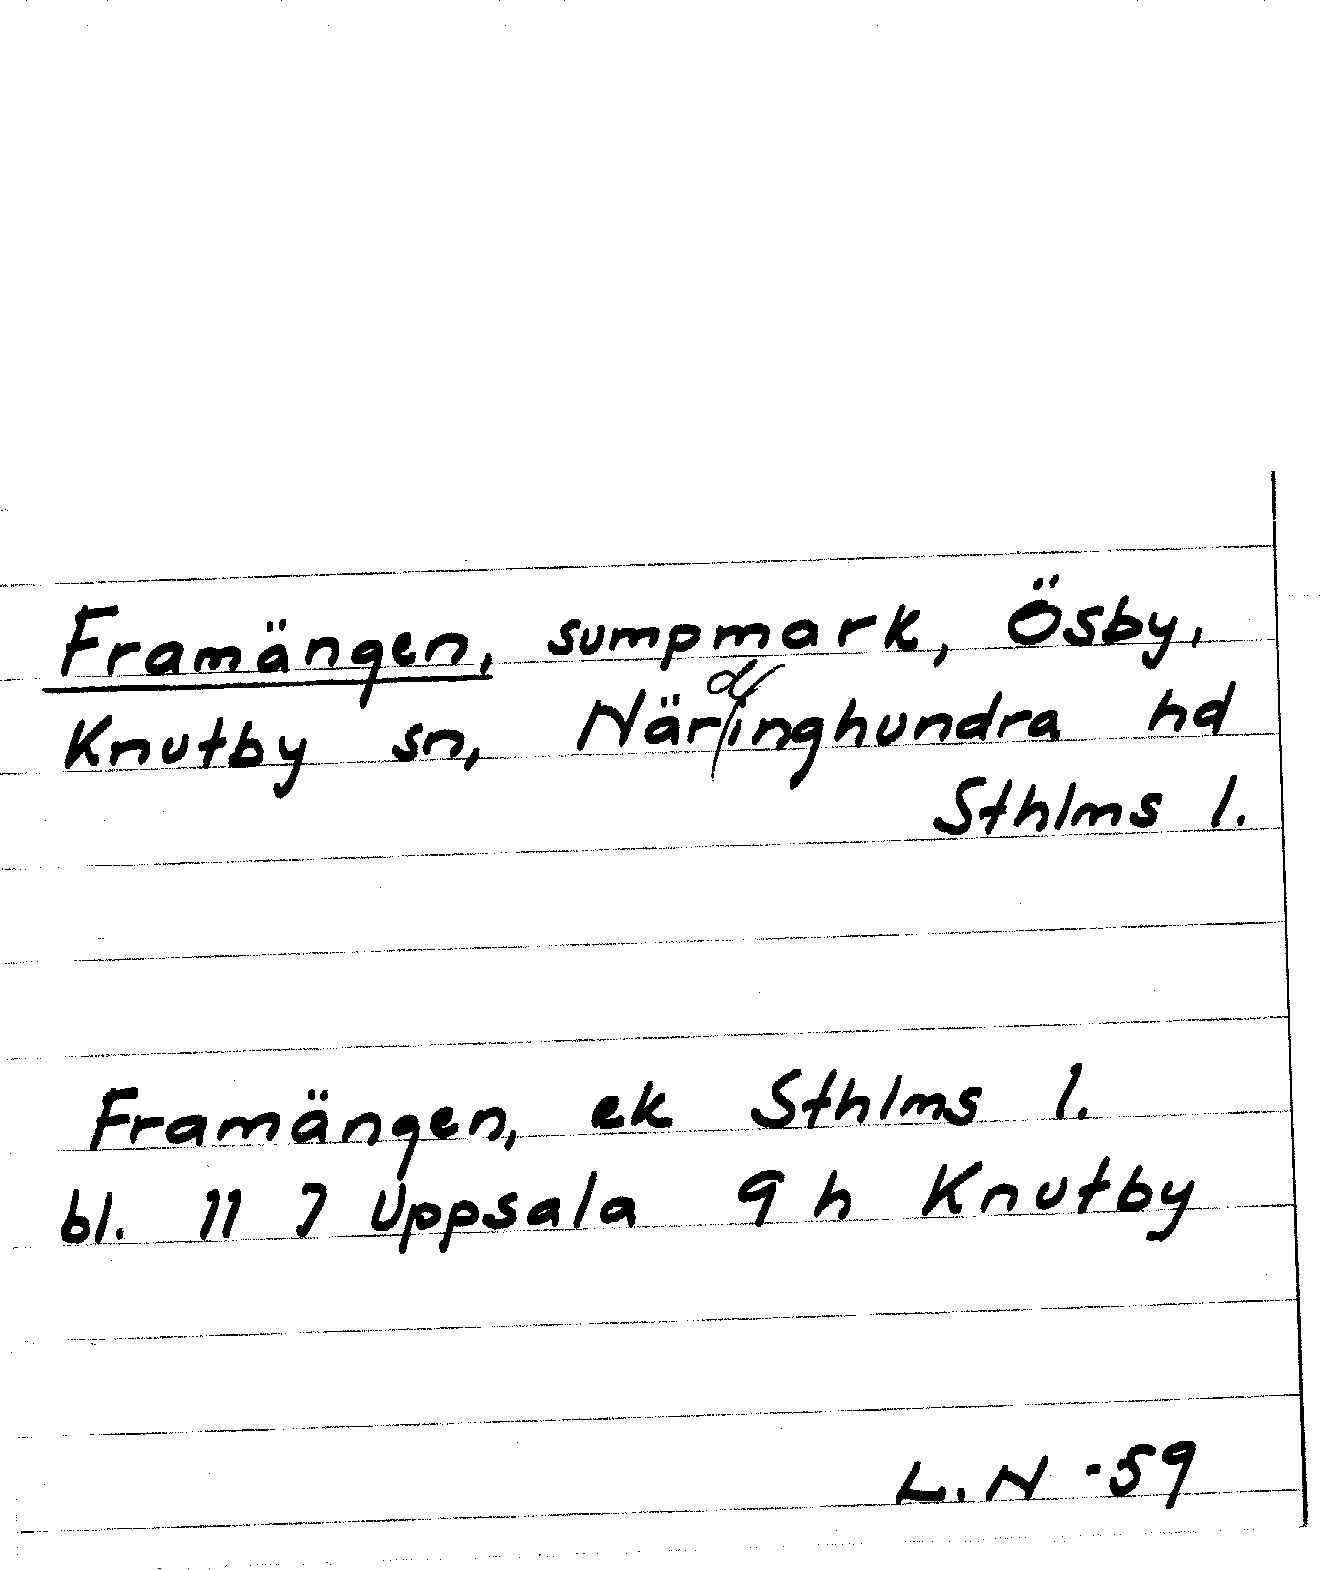 Framängen, sumpmark, Ösby,
Knutby sn, Närdinghundra hd
Sthlms l.
Framängen, ek Sthlms l.
bl. 11 I Uppsala 9 h Knutby
L. N -59